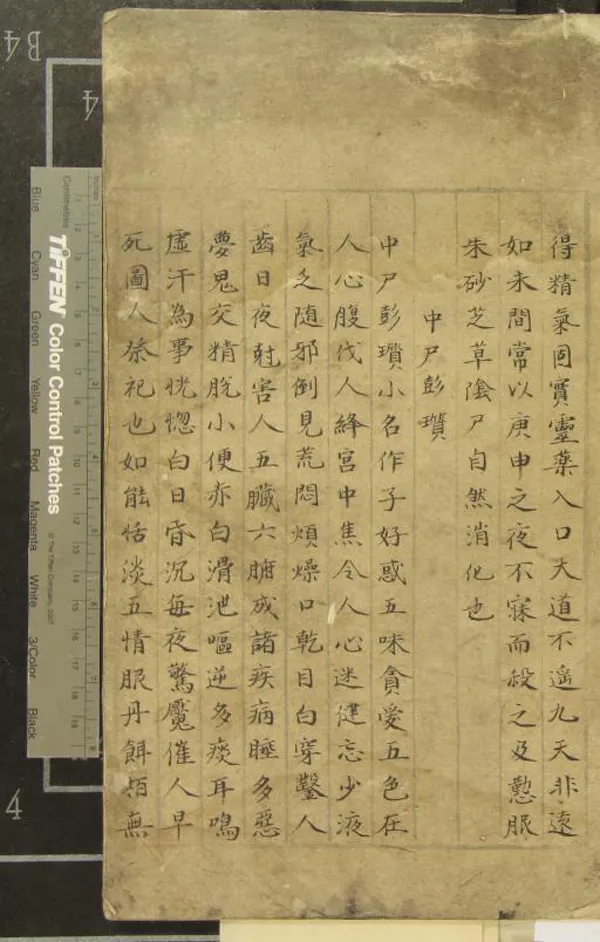 得精氣固實靈藥入口大道不遥九天非遠
如未間常以庚申之夜不寐而殺之及懃服
朱砂芝草陰尸自然消化也
中尸彭瓚
中尸彭瓚小名作子好惑五味貪愛五色在
人心腹伐人絳宮中焦令人心迷健忘少液
氣乏随邪倒見荒悶煩燥口乾目白穿鑿人
齒日夜尅害人五臟六腑成諸疾病睡多惡
夢鬼交精脫小便赤白滑泄嘔逆多痰耳鳴
虛汗為事恍惚白日昏沉每夜驚魘催人早
死圖人祭祀也如能恬淡五情服丹餌栢無
Inches
Centimetres
TIFFEN Color Control Patches
© The Tiffen Company, 2007
Blue Cyan Green Yellow Red Magenta White 3/Color Black
B4
4
4